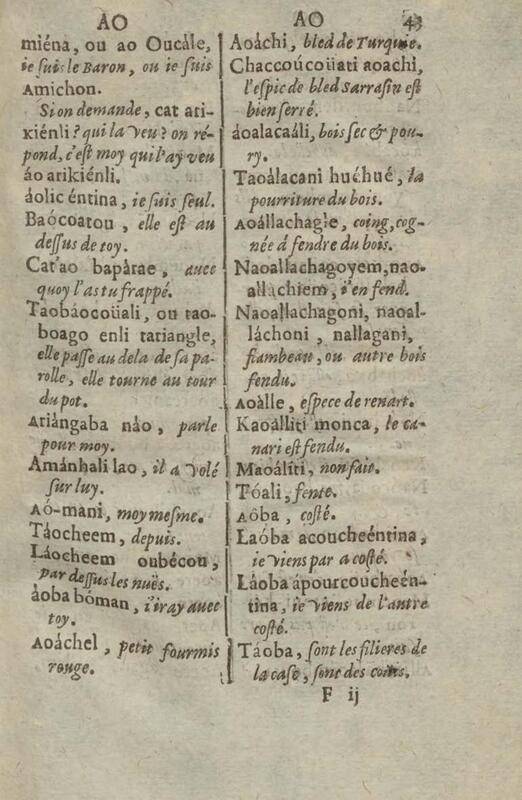 AO
miéna, ou ao Oucále,
ie suis le Baron, ou ie suis
Amichon.
Si on demande, cat ari-
kiénli? qui la veu? on ré-
pond, c'est moy qui l'ay veu
áo arikiénli.
áolic éntina, ie suis seul.
Baócoatou, elle est au
dessus de toy.
Cat'ao bapàrae, avec
quoy l'as tu frappé.
Taobáocoüali, ou tao-
boago enli tariangle,
elle passe au dela de sa pa-
rolle, elle tourne au tour
du pot.
Ariàngaba nào, parle
pour moy.
Amánhali lao, il a volé
sur luy.
Aó-mani, moy mesme.
Táocheem, depuis.
Láocheem oubécou,
par dessus les nuës.
áoba bóman, i'iray avec
toy.
Aoáchel, petit fourmis
rouge.
AO 43
Aoáchi, bled de Turquie.
Chaccoúcoüati aoachi,
l'espic de bled Sarrasin est
bien serré.
áoalacaáli, bois sec & pou-
ry.
Taoálacani huéhué, la
pourriture du bois.
Aoállachagle, coing, cog-
née á fendre du bois.
Naoallachagoyem, nao-
allachiem, i'en fend.
Naoallachagoni, naoal-
láchoni, nallagani,
flambeau, ou autre bois
fendu.
Aoálle, espece de renart.
Kaoálliti monca, le ca-
nari est fendu.
Maoálíti, non faic.
Tóali, fente.
Aôba, costé.
Laóba acoucheéntina,
ie viens par a costé.
Láoba ápourcoucheén-
tina, ie viens de l'autre
costé.
Táoba, sont les filieres de
la case, sont des coins.
F ij